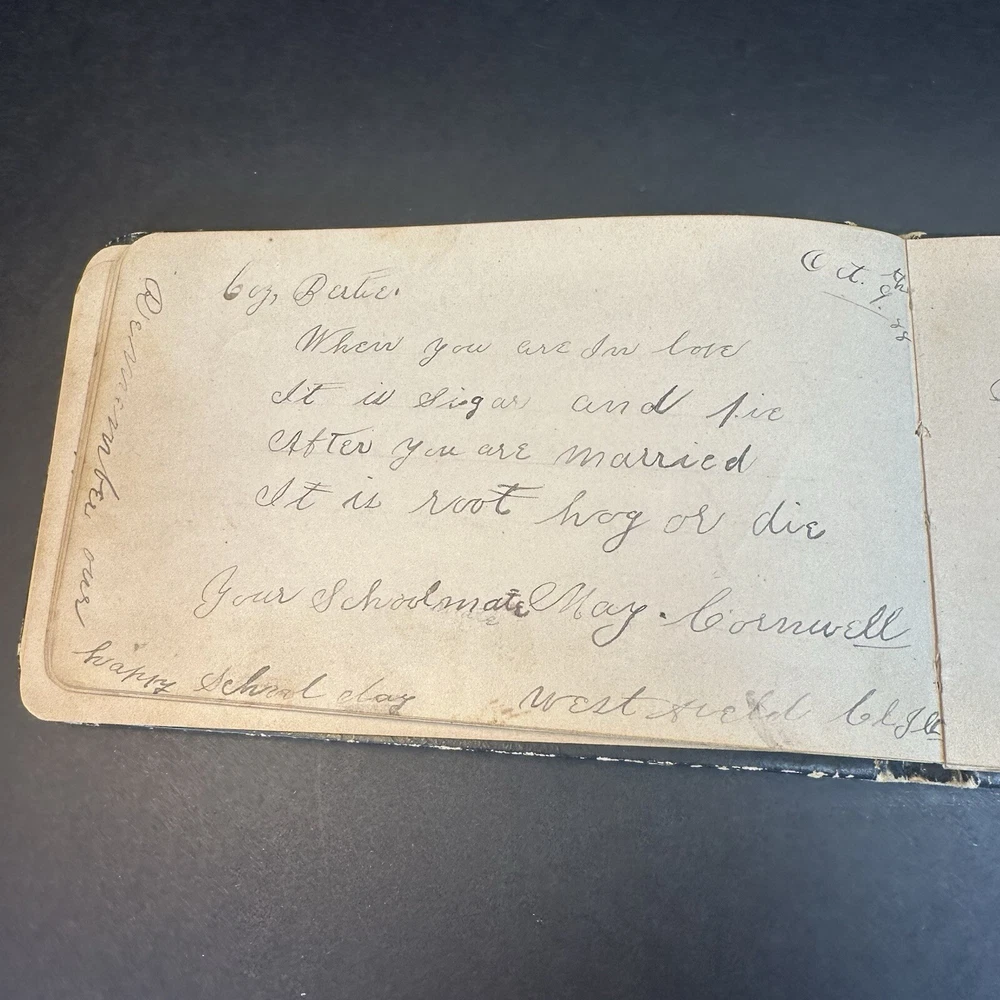 Coz, Bertie.
Oct. 9th 88
When you are In love
It is Sigar and pie
After you are married
It is root hog or die
Your Schoolmate May. Cornwell
Rememmber our
happy School day
West field